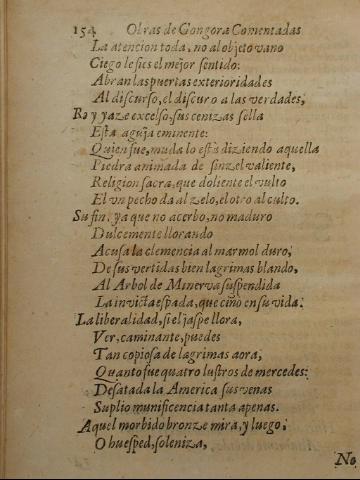 154 Obras de Gongora Comentadas
La atencion toda, no al objeto vano
Ciego le fies el mejor sentido:
Abran las puertas exterioridades
Al discurso, el discuro a las verdades,
Ro y yaze excelso, sus cenizas sella
Esta aguja eminente:
Quien fue, muda lo està diziendo aquella
Piedra animada de sinzel valiente,
Religion sacra, que doliente el vulto
El vn pecho da al zelo, el otro al culto.
Su fin, ya que no acerbo, no maduro
Dulcemente llorando
Acusa la clemencia al marmol duro,
De sus vertidas bien lagrimas blando,
Al Arbol de Minerva suspendida
La invicta espada, que ciño en su vida.
La liberalidad, si el jaspe llora,
Ver, caminante, puedes
Tan copiosa de lagrimas aora,
Quanto fue quatro lustros de mercedes:
Desatada la America sus venas
Suplio munificencia tanta apenas.
Aquel morbido bronze mira, y luego,
O huesped, soleniza,
No